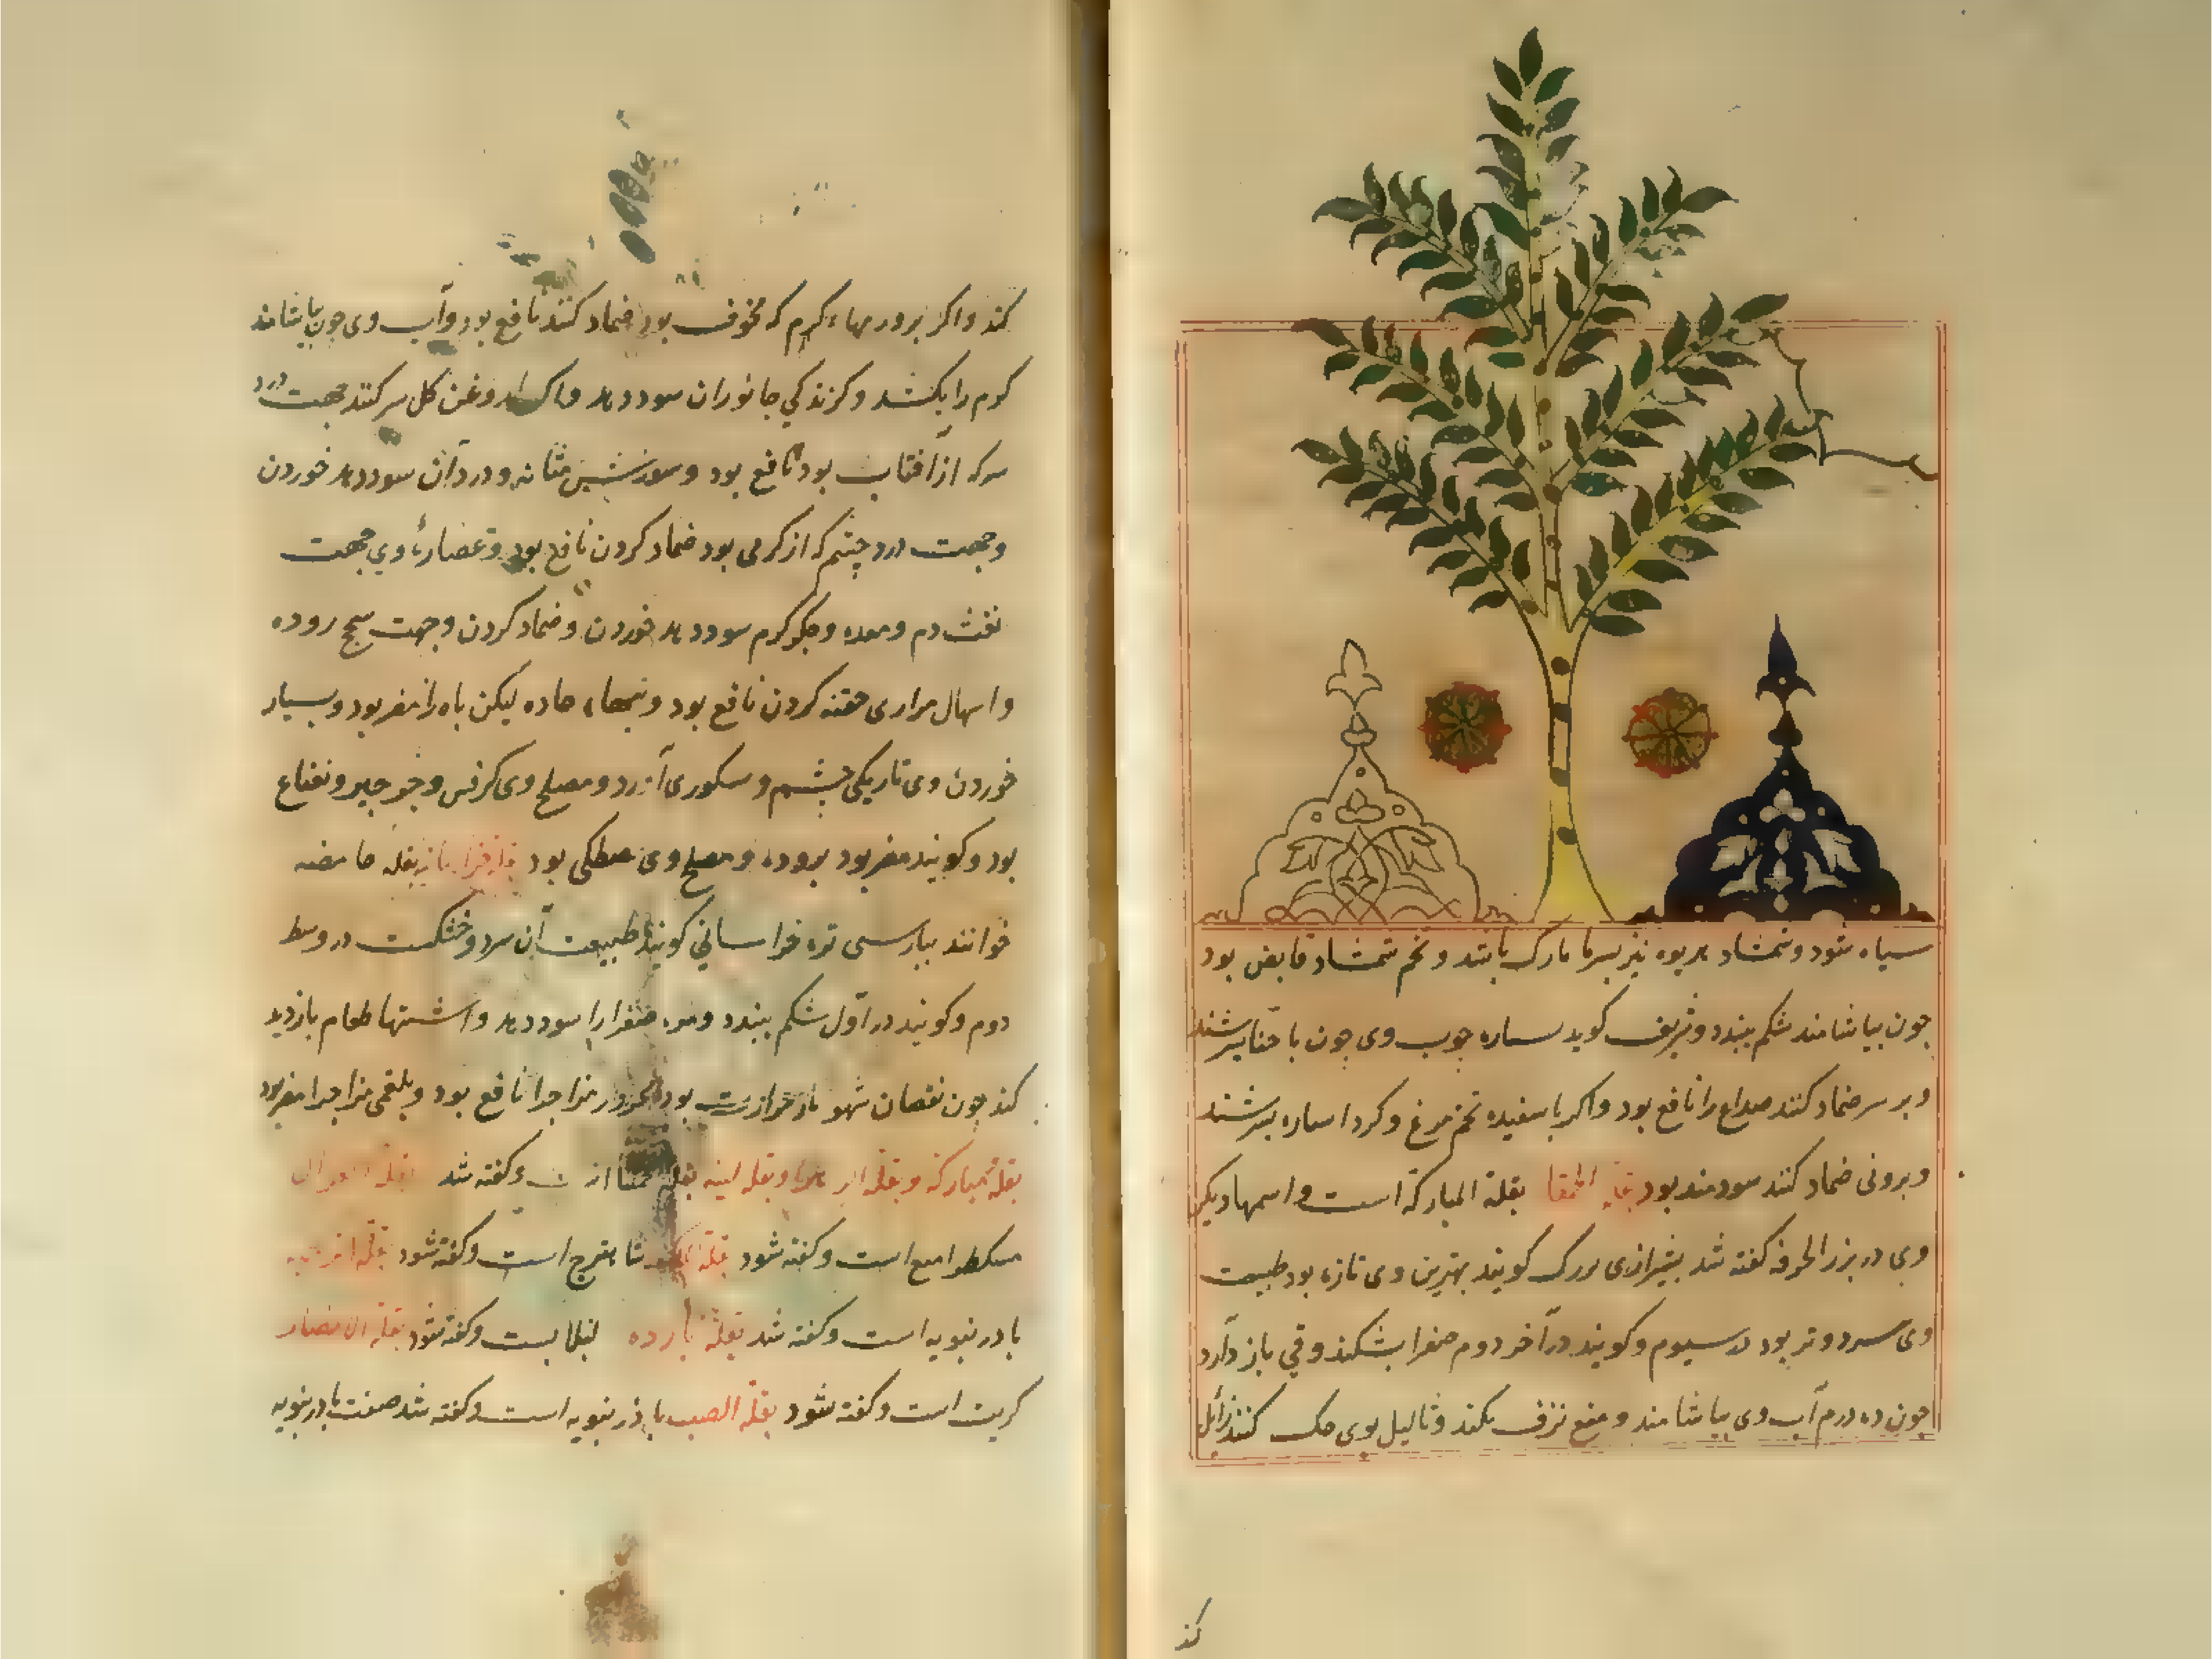 سیاه شود و شمشاد هر بوه نیز بسرما نازک باشد و تخم شمشاد قابض بود
جون بیاشامند شکم ببندد و شریف کوید نساره جوب وی جون با حنا بسرشند
و بر سر ضماد کنند صداع را نافع بود و اکر با سفیده تخم مرغ و کرد اساره بسرشند
و برونی ضماد کنند سودمند بود بقلة الحمقا بقلة المبارکه است و اسمهاء دیکر
وی در بزر الخرفه کفته شد بشیرازی بورک کویند بهترین وی تازه بود طبیعت
وی سرد و تر بود در سیوم و کویند در آخر دوم صفرا بشکند و قی باز دارد
جون ده درم آب وی بیاشامند و منع نزف بکند و ثالیل بوی حک کنند زایل
کند
کند و اکر بر ورمهاء کرم که مخوف بود ضماد کنند نافع بود و آب وی جون بیاشامند
کرم را بکشد و کزندکی جانوران سود دهد و اکر با روغن کل بر سر کنند جهت درد
سر که از آفتاب بود نافع بود و سوزش مثانه و درد آن سود دهد خوردن
و جهت درد چشم که از کرمی بود ضماد کردن نافع بود و عصارۀ وی جهت
نفث دم و معده و جکر کرم سود دهد خوردن و ضماد کردن و جهت سحج روده
و اسهال مراری حقنه کردن نافع بود و تبهاء حاده لیکن باه را مضر بود و بسیار
خوردن وی تاریکی چشم و سکوری آورد و مصلح وی کرفس و جرجیر و نعناع
بود و کویند مضر بود بروده و مصلح وی مصطکی بود بقله خراسانیه بقله حامضه
خوانند بپارسی تره خراسانی کویند طبیعت آن سرد و خشکست در وسط
دوم و کویند در اول شکم ببندد و مره صفرا را سود دهد و اشتهاء طعام بازدید
کند جون نقصان شهوة از حرارت بود محرور مزاج را نافع بود و بلغمی مزاج را مضر بود
بقلة مبارکه و بقلة الزهرا و بقله لینه بقلة الحمقا است و کفته شد بقلة الغزال
مسکطرامیع است و کفته شود بقلة شاهترج است و کفته شود بقلة اترجیه
بادرنبویه است و کفته شد بقلة بارده لبلابست و کفته شود بقلة الانصار
کرنب است و کفته شود بقلة الضب باذرنبویه است و کفته شد صفت بادرنبویه